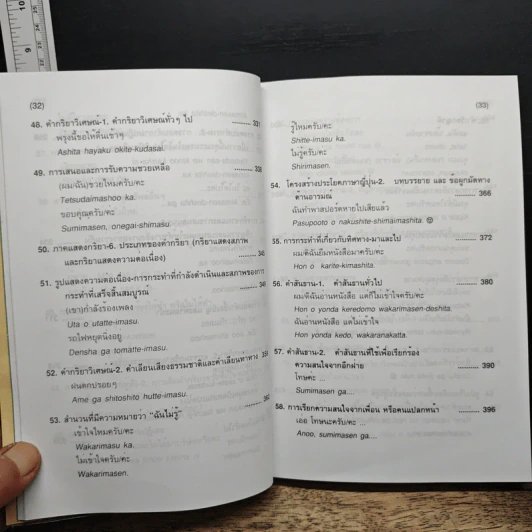 (32)
48. คำกริยาวิเศษณ์-1. คำกริยาวิเศษณ์ทั่วๆ ไป .......... 331
พรุ่งนี้ขอให้ตื่นเช้าๆ
Ashita hayaku okite-kudasai.
49. การเสนอและการรับความช่วยเหลือ .......... 338
(ผม/ฉัน)ช่วยไหมครับ/คะ
Tetsudaimashoo ka.
ขอบคุณครับ/คะ
Sumimasen, onegai-shimasu.
50. ภาคแสดงกริยา-6. ประเภทของคำกริยา (กริยาแสดงสภาพ
และกริยาแสดงความต่อเนื่อง)
51. รูปแสดงความต่อเนื่อง-การกระทำที่กำลังดำเนินและสภาพของการ
กระทำที่เสร็จสิ้นสมบูรณ์
(เขา)กำลังร้องเพลง
Uta o utatte-imasu.
รถไฟหยุดนิ่งอยู่
Densha ga tomatte-imasu.
52. คำกริยาวิเศษณ์-2. คำเลียนเสียงธรรมชาติและคำเลียนท่าทาง
ฝนตกปรอยๆ
Ame ga shitoshito hutte-imasu.
53. สำนวนที่มีความหมายว่า "ฉันไม่รู้"
เข้าใจไหมครับ/คะ
Wakarimasu ka.
ไม่เข้าใจครับ/คะ
Wakarimasen.
(33)
รู้ไหมครับ/คะ
Shitte-imasu ka.
ไม่รู้ครับ/คะ
Shirimasen.
54. โครงสร้างประโยคภาษาญี่ปุ่น-2. บทบรรยาย และ ข้อผูกมัดทาง
ด้านอารมณ์ .......... 366
ฉันทำพาสปอร์ตหายไปเสียแล้ว
Pasupooto o nakushite-shimaimashita.
55. การกระทำที่เกี่ยวกับทิศทาง-มาและไป .......... 372
ผม/ดิฉันยืมหนังสือมาครับ/คะ
Hon o karite-kimashita.
56. คำสันธาน-1. คำสันธานทั่วไป .......... 380
ผม/ดิฉันอ่านหนังสือ แต่ก็ไม่เข้าใจครับ/คะ
Hon o yonda keredomo wakarimasen-deshita.
ฉันอ่านหนังสือ แต่ไม่เข้าใจ
Hon yonda kedo, wakaranakatta.
57. คำสันธาน-2. คำสันธานที่ใช้เพื่อเรียกร้อง
ความสนใจจากอีกฝ่าย .......... 390
โทษคะ ...
Sumimasen ga...
58. การเรียกความสนใจจากเพื่อน หรือคนแปลกหน้า .......... 396
เออ โทษนะครับ/คะ ...
Anoo, sumimasen ga....